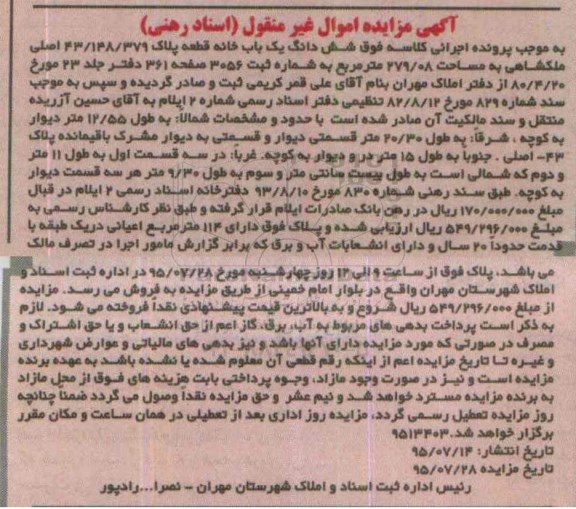 آگهی مزایده اموال غیر منقول (اسناد رهنی)
به موجب پرونده اجرائی کلاسه فوق شش دانگ یک باب خانه قطعه پلاک ۴۳/۱۴۸/۳۷۹ اصلی
ملکشاهی به مساحت ۲۷۹/۰۸ مترمربع به شماره ثبت ۳۰۵۶ صفحه ۳۶۱ دفتر جلد ۲۳ مورخ
۸۰/۴/۲۰ از دفتر املاک مهران بنام آقای علی قمر کریمی ثبت و صادر گردیده و سپس به موجب
سند شماره ۸۲۹ مورخ ۸۲/۸/۱۲ تنظیمی دفتر اسناد رسمی شماره ۲ ایلام به آقای حسین آزریده
منتقل و سند مالکیت آن صادر شده است با حدود و مشخصات شمالا: به طول ۱۲/۵۵ متر دیوار
به کوچه ، شرقا: به طول ۲۰/۳۰ متر قسمتی دیوار و قسمتی به دیوار مشرک باقیمانده پلاک
۴۳- اصلی . جنوبا به طول ۱۵ متر در و دیوار به کوچه. غربا: در سه قسمت اول به طول ۱۱ متر
و دوم که شمالی است به طول بیست سانتی متر و سوم به طول ۹/۳۰ متر هر سه قسمت دیوار
به کوچه. طبق سند رهنی شماره ۸۳۰ مورخ ۹۳/۸/۱۰ دفترخانه اسناد رسمی ۲ ایلام در قبال
مبلغ ۱۷۰/۰۰۰/۰۰۰ ریال در رهن بانک صادرات ایلام قرار گرفته و طبق نظر کارشناس رسمی به
مبلغ ۵۴۹/۲۹۶/۰۰۰ ریال ارزیابی شده و پلاک فوق دارای ۱۱۴ مترمربع اعیانی دریک طبقه با
قدمت حدوداً ۲۰ سال و دارای انشعابات آب و برق که برابر گزارش مامور اجرا در تصرف مالک
می باشد، پلاک فوق از ساعت ۹ الی ۱۲ روز چهارشنبه مورخ ۹۵/۰۷/۲۸ در اداره ثبت اسناد و
املاک شهرستان مهران واقع در بلوار امام خمینی از طریق مزایده به فروش می رسد. مزایده
از مبلغ ۵۴۹/۲۹۶/۰۰۰ ریال شروع و به بالاترین قیمت پیشنهادی نقداً فروخته می شود. لازم
به ذکر است پرداخت بدهی های مربوط به آب، برق، گاز اعم از حق انشعاب و یا حق اشتراک و
مصرف در صورتی که مورد مزایده دارای آنها باشد و نیز بدهی های مالیاتی و عوارض شهرداری
و غیره تا تاریخ مزایده اعم از اینکه رقم قطعی آن معلوم شده یا نشده باشد به عهده برنده
مزایده است و نیز در صورت وجود مازاد، وجوه پرداختی بابت هزینه های فوق از محل مازاد
به برنده مزایده مسترد خواهد شد و نیم عشر و حق مزایده نقداً وصول می گردد ضمنا چنانچه
روز مزایده تعطیل رسمی گردد، مزایده روز اداری بعد از تعطیلی در همان ساعت و مکان مقرر
برگزار خواهد شد. ۹۵۱۳۴۰۳
تاریخ انتشار: ۹۵/۰۷/۱۴
تاریخ مزایده ۹۵/۰۷/۲۸
رئیس اداره ثبت اسناد و املاک شهرستان مهران – نصرا...رادپور